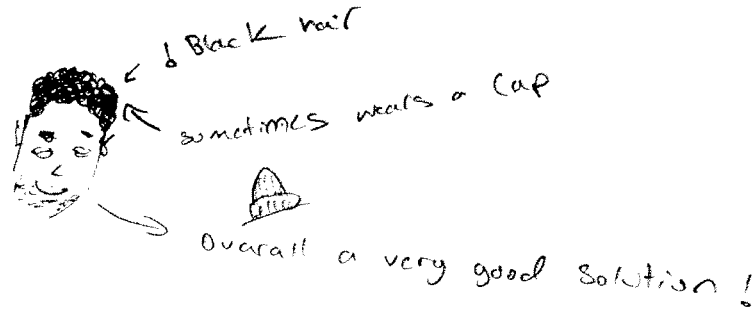 ! Black hair
sometimes wears a cap
Overall a very good solution !